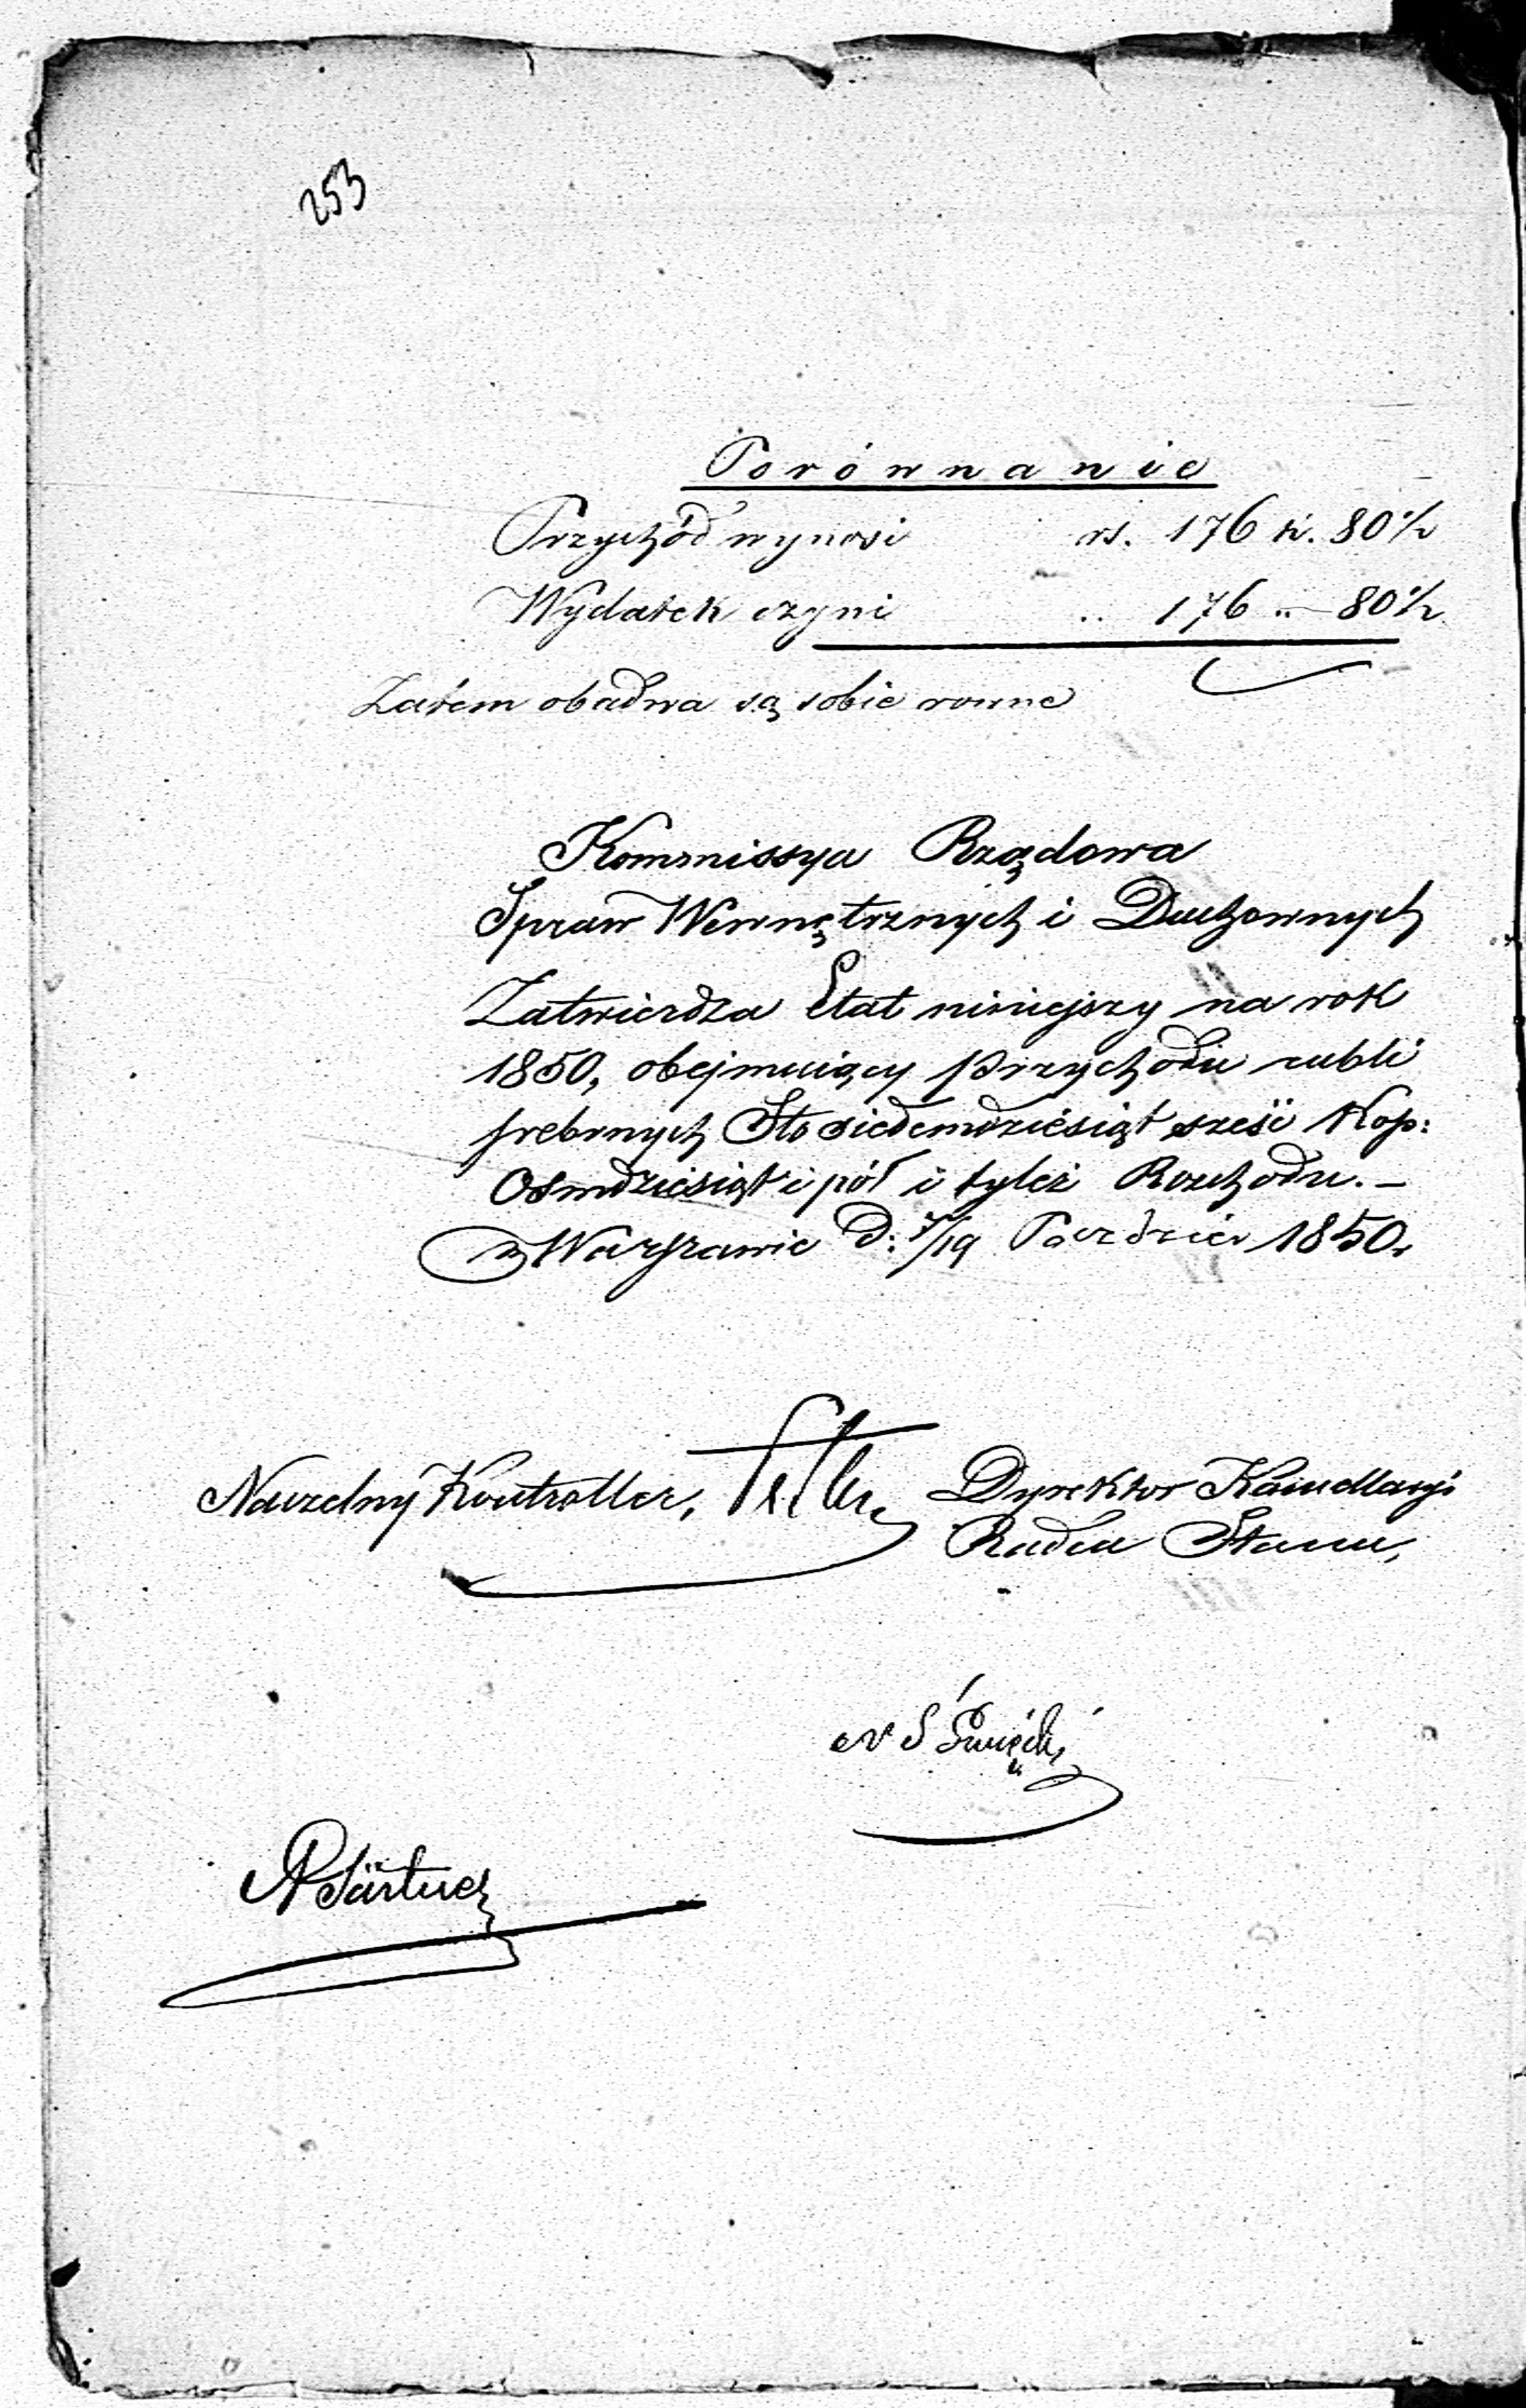 253
Porównanie
Przychód wynosi rs. 176 k. 80½
Wydatek czyni „ 176 „ — 80½
Zatem obadwa są sobie rowne
Kommissya Rządowa
Spraw Wewnętrznych i Duchownych
Zatwierdza Etat niniejszy na rok
1850, obejmuiący Przychodu rubli
srebrnych Sto siedemdziesiąt sześć Kop:
Osmdziesiąt i pół i tyleż Rozchodu. —
w Warszawie D: 7/19 Paździer 1850.
Naczelny Kontroller, Dyrektor Kancellaryi
Radca Stanu,